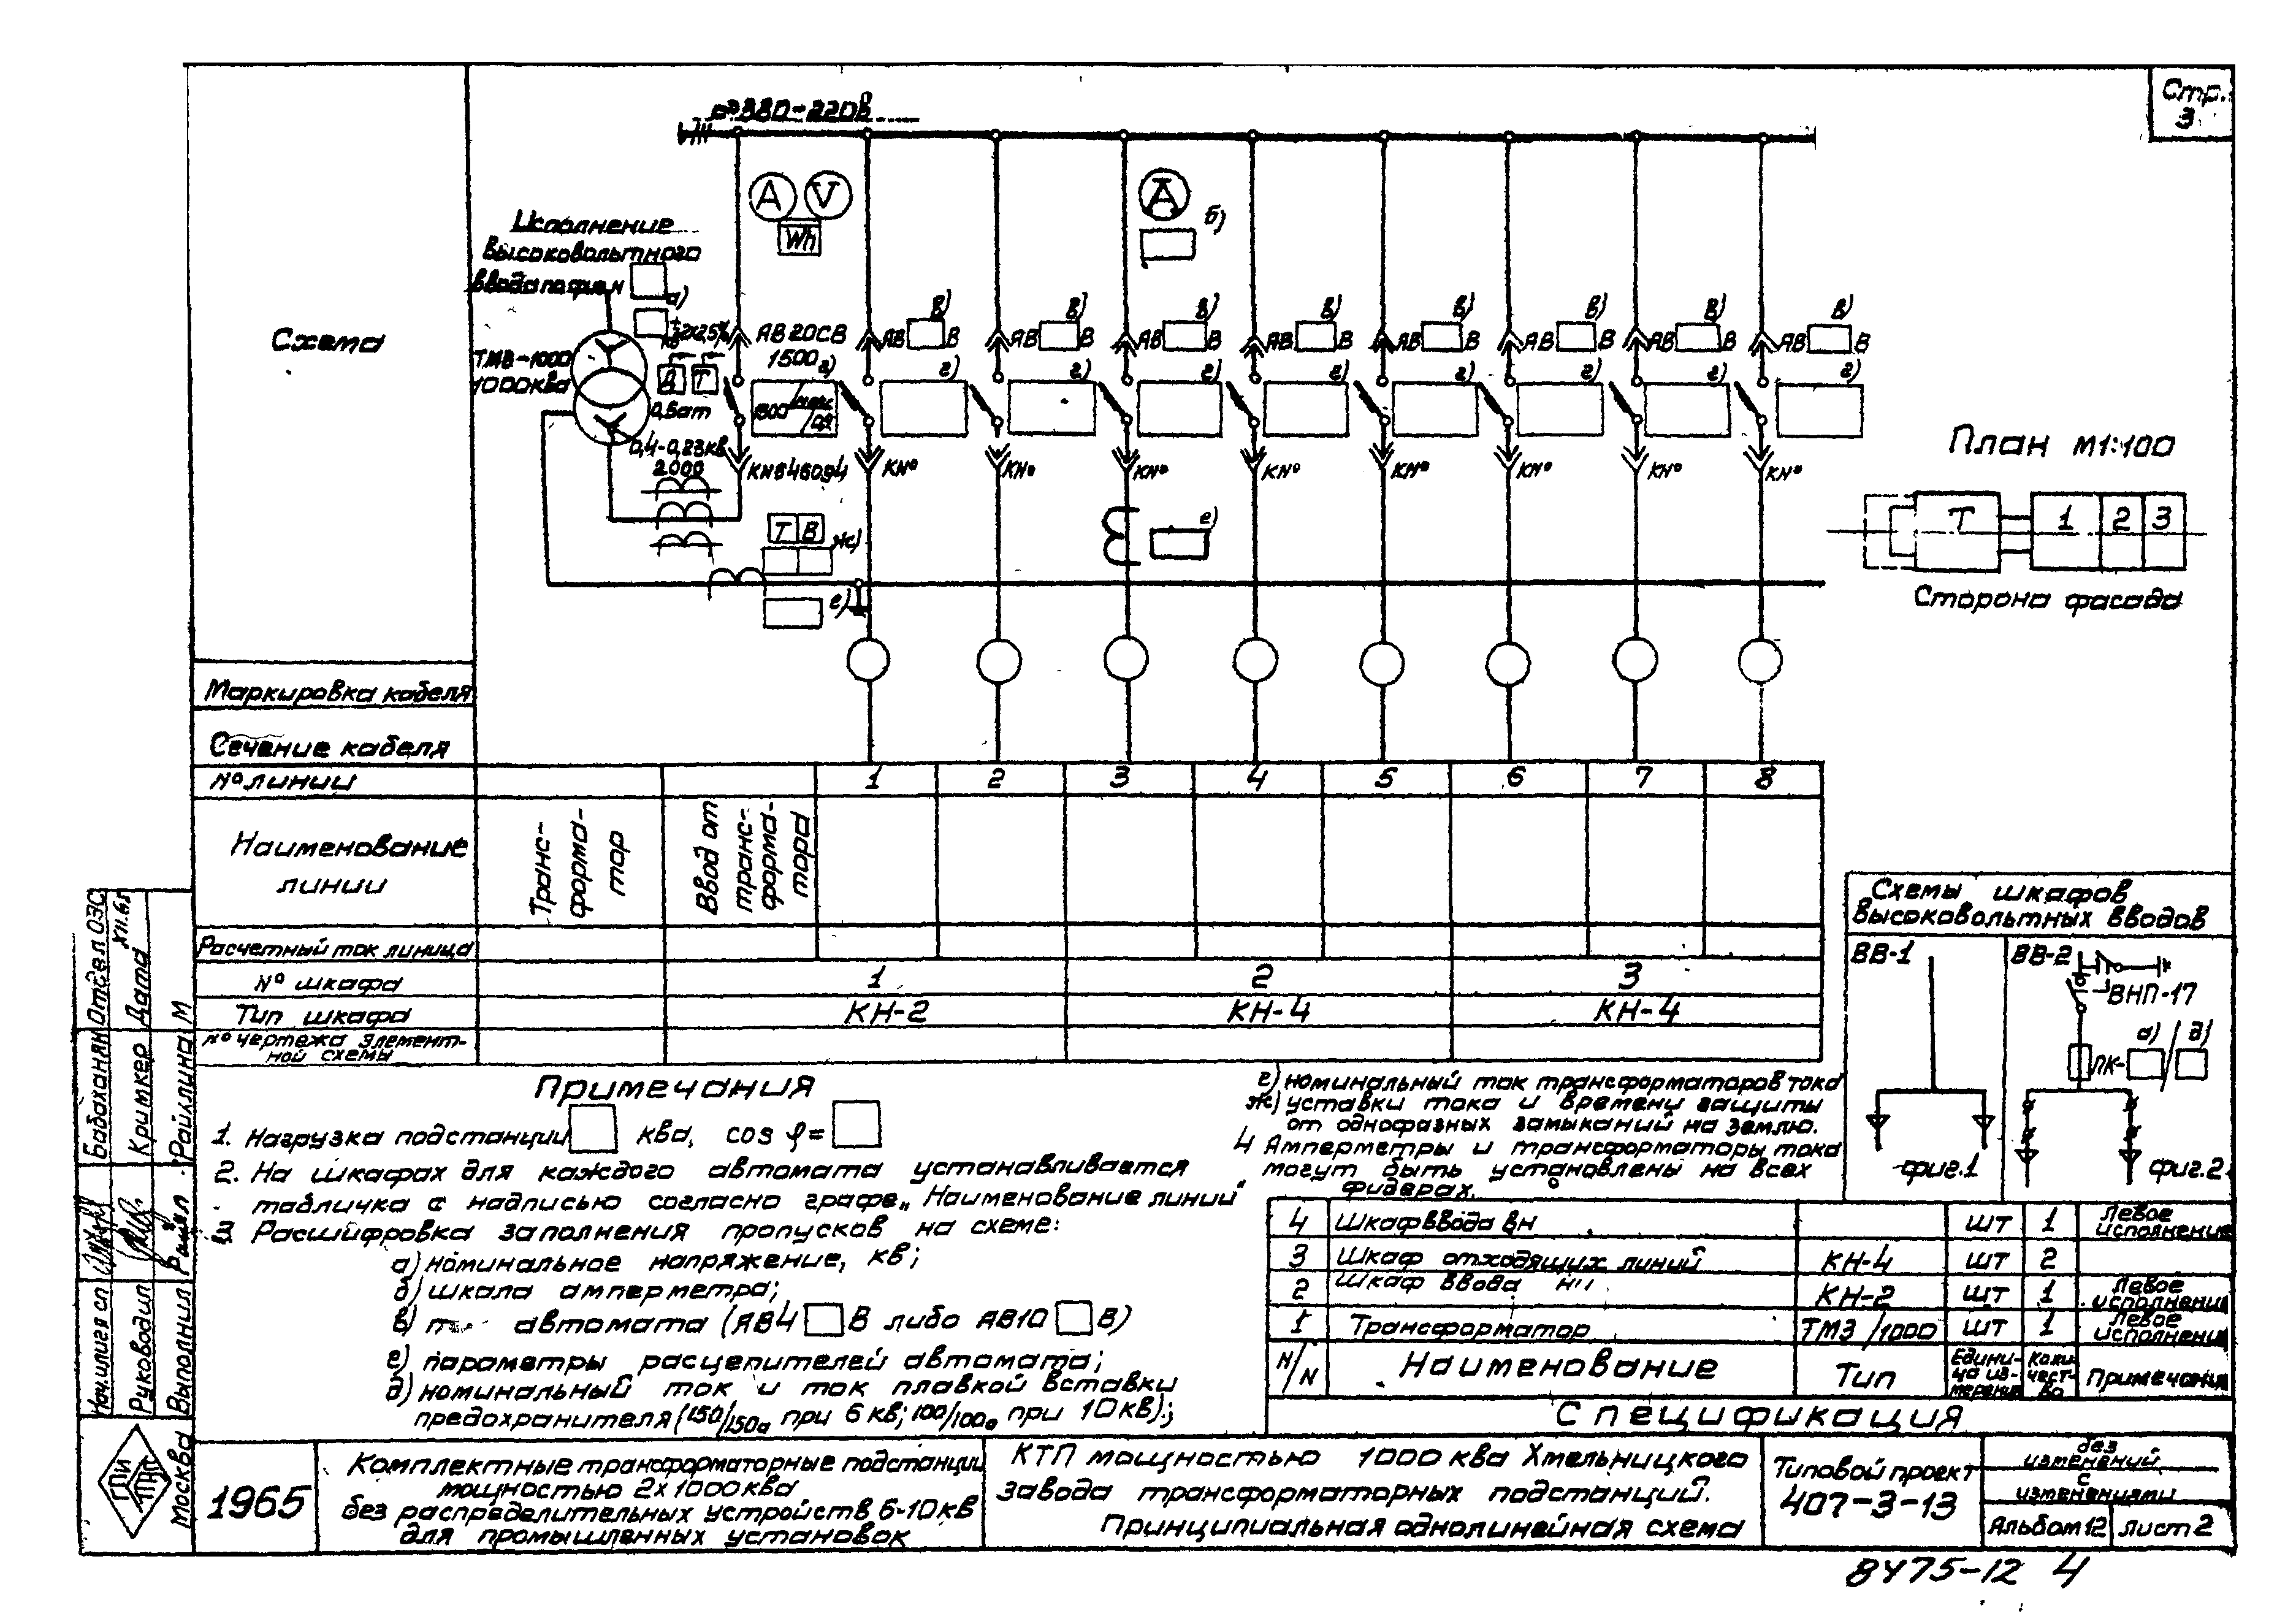 Стр.
3
380-220в
Схема
Исполнение
высоковольтного
ввода по фиг. №
а)
±2х2,5%
ТМЗ-1000
1000 ква
Д Т
0,5ат
0,4-0,23кв
2000
A V
Wh
АВ20СВ
1500
г)
КН
T В
ж)
е)
A
б)
е)
в) в) в) в) в) в) в) в)
АВ В АВ В АВ В АВ В АВ В АВ В АВ В АВ В
г) г) г) г) г) г) г) г)
К№ К№ К№ К№ К№ К№ К№ К№
План М1:100
Т 1 2 3
Сторона фасада
Маркировка кабеля
Сечение кабеля
№ линии 1 2 3 4 5 6 7 8
Наименование
линии
Транс-
форма-
тор
Ввод от
транс-
форма-
тора
Расчетный ток линии, а
№ шкафа 1 2 3
Тип шкафа КН-2 КН-4 КН-4
№ чертежа элемент-
ной схемы
Схемы шкафов
высоковольтных вводов
ВВ-1 ВВ-2
ВНП-17
а) / д)
ПК-
фиг.1 фиг.2
Примечания
1. Нагрузка подстанции ква, cos φ=
2. На шкафах для каждого автомата устанавливается
табличка с надписью согласно графе „Наименование линий“
3. Расшифровка заполнения пропусков на схеме:
а) номинальное напряжение, кв;
б) шкала амперметра;
в) автомата (АВ4 В либо АВ10 В)
г) параметры расцепителей автомата;
д) номинальный ток и ток плавкой вставки
предохранителя (150/150а при 6 кв; 100/100а при 10 кв);
е) номинальный ток трансформаторов тока
ж) уставки тока и времени защиты
от однофазных замыканий на землю.
4 Амперметры и трансформаторы тока
могут быть установлены на всех
фидерах.
4 Шкаф ввода вн шт 1 Левое исполнение
3 Шкаф отходящих линий КН-4 шт 2
2 Шкаф ввода КН-2 шт 1 Левое исполнение
1 Трансформатор ТМЗ/1000 шт 1 Левое исполнение
N/N Наименование Тип Едини-ца из-мерения Коли-чест-во Примечания
Спецификация
Бабаханян Отдел ОЭС
Кример Дата
Райхлина М
Нач.
Руководил
Выполнил
ГПИ
ТПЭП
Москва
1965
Комплектные трансформаторные подстанции
мощностью 2х1000ква
без распределительных устройств 6-10кв
для промышленных установок
КТП мощностью 1000 ква Хмельницкого
завода трансформаторных подстанций.
Принципиальная однолинейная схема
Типовой проект
407-3-13
без
изменений
с
изменениями
Альбом 12 Лист 2
8475-12 4